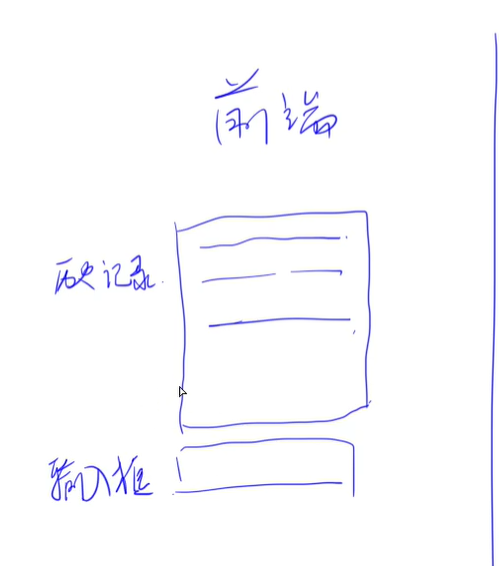 前端
历史记录
输入框